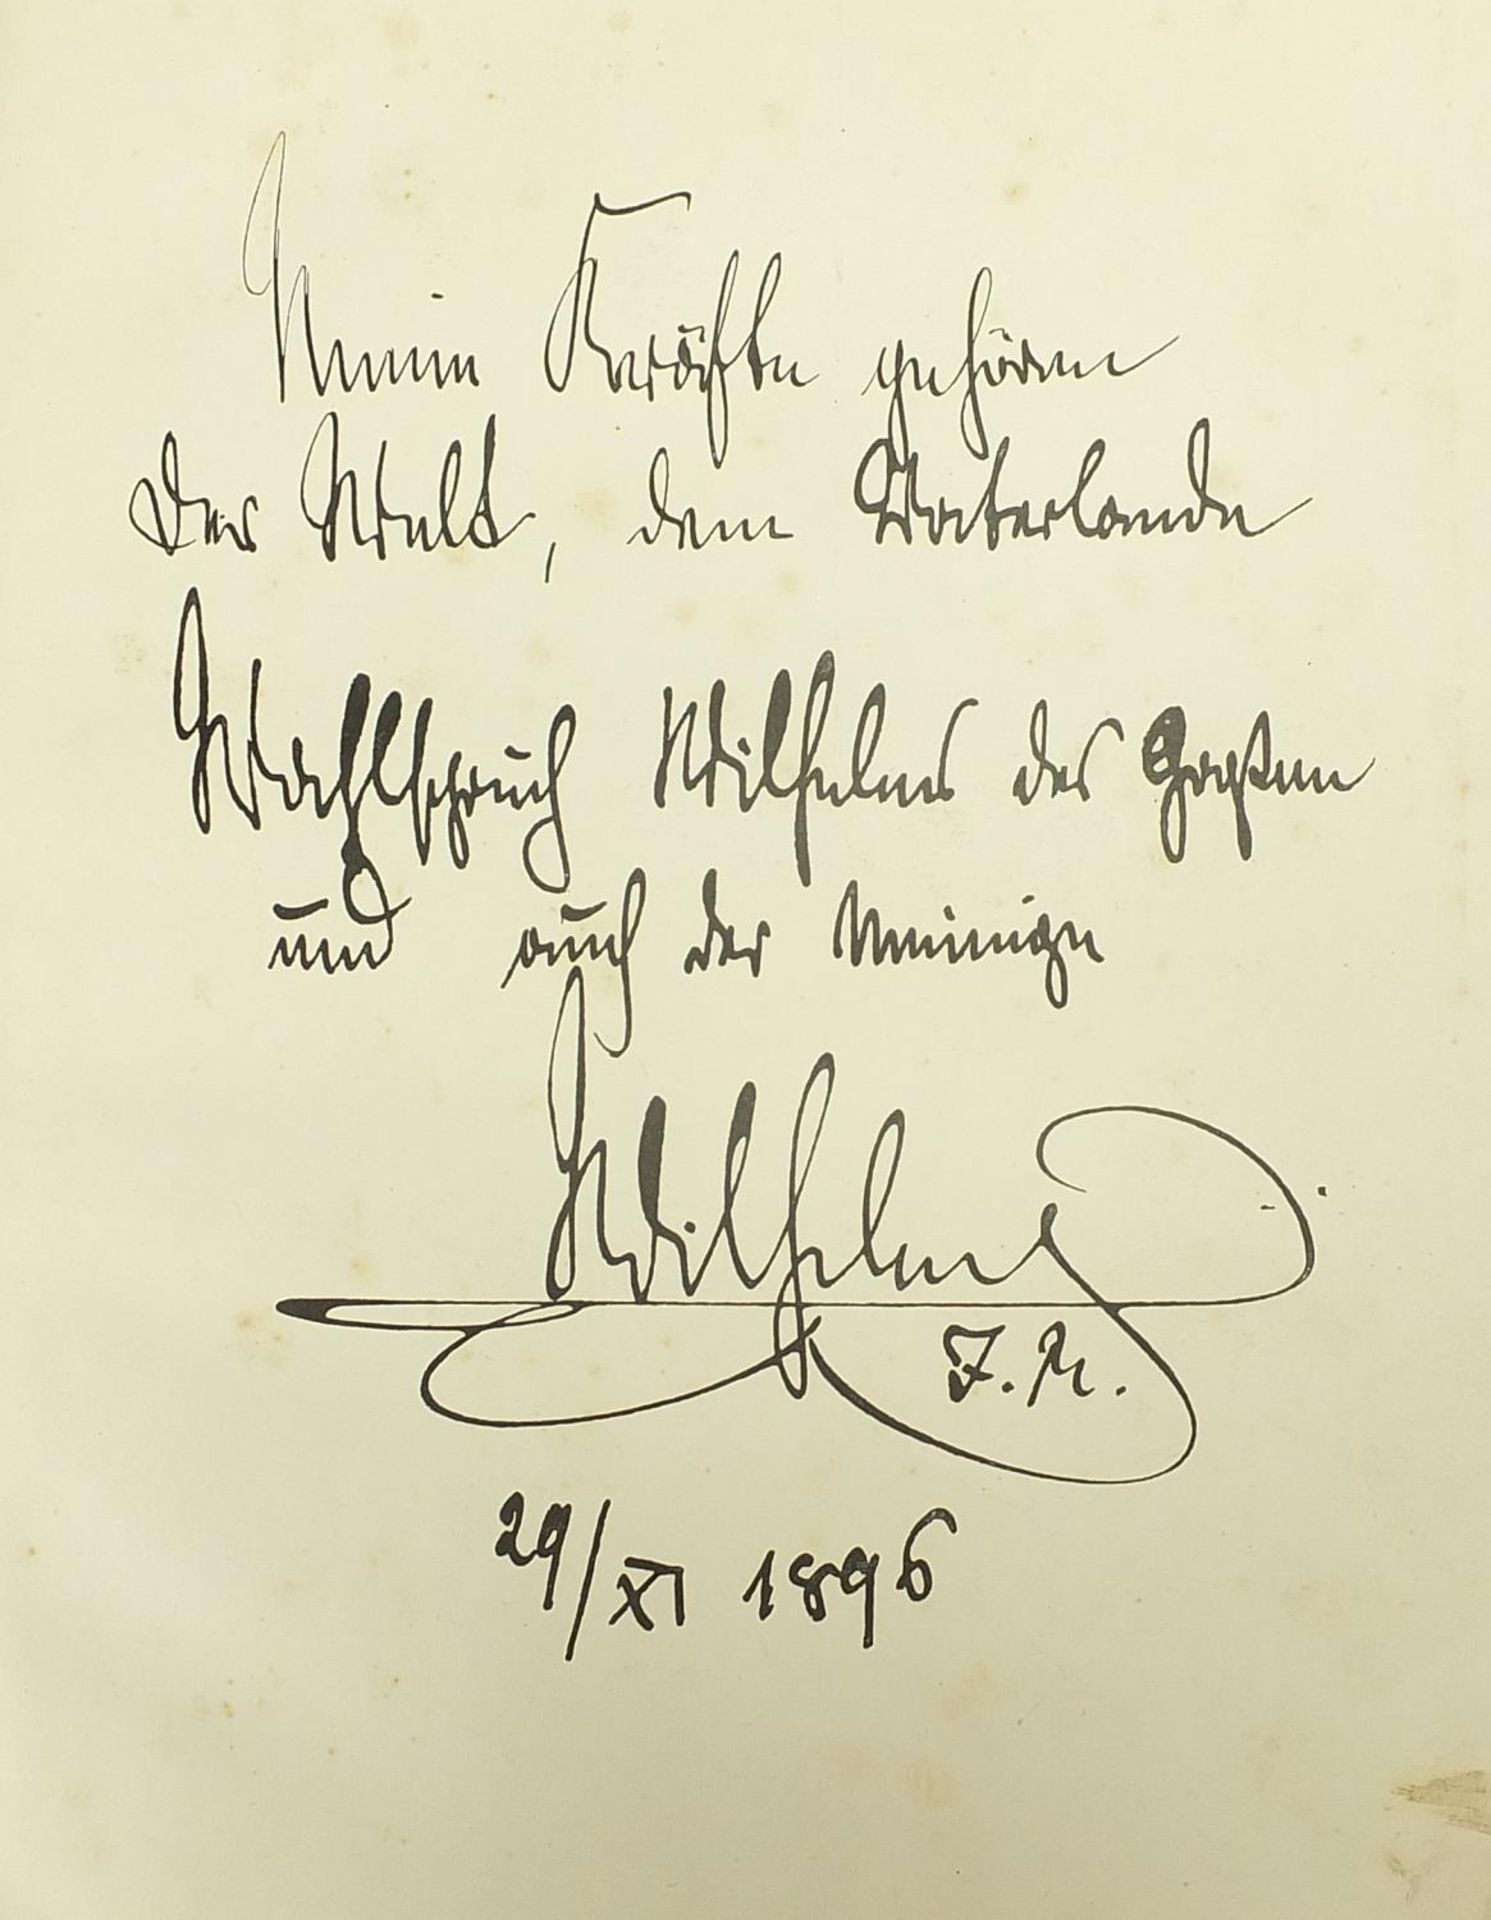 Meine Kräfte gehören
der Welt, dem Vaterlande
Wahlspruch Wilhelms des Großen
und auch der meinige
Wilhelm
I. R.
29/XI 1896